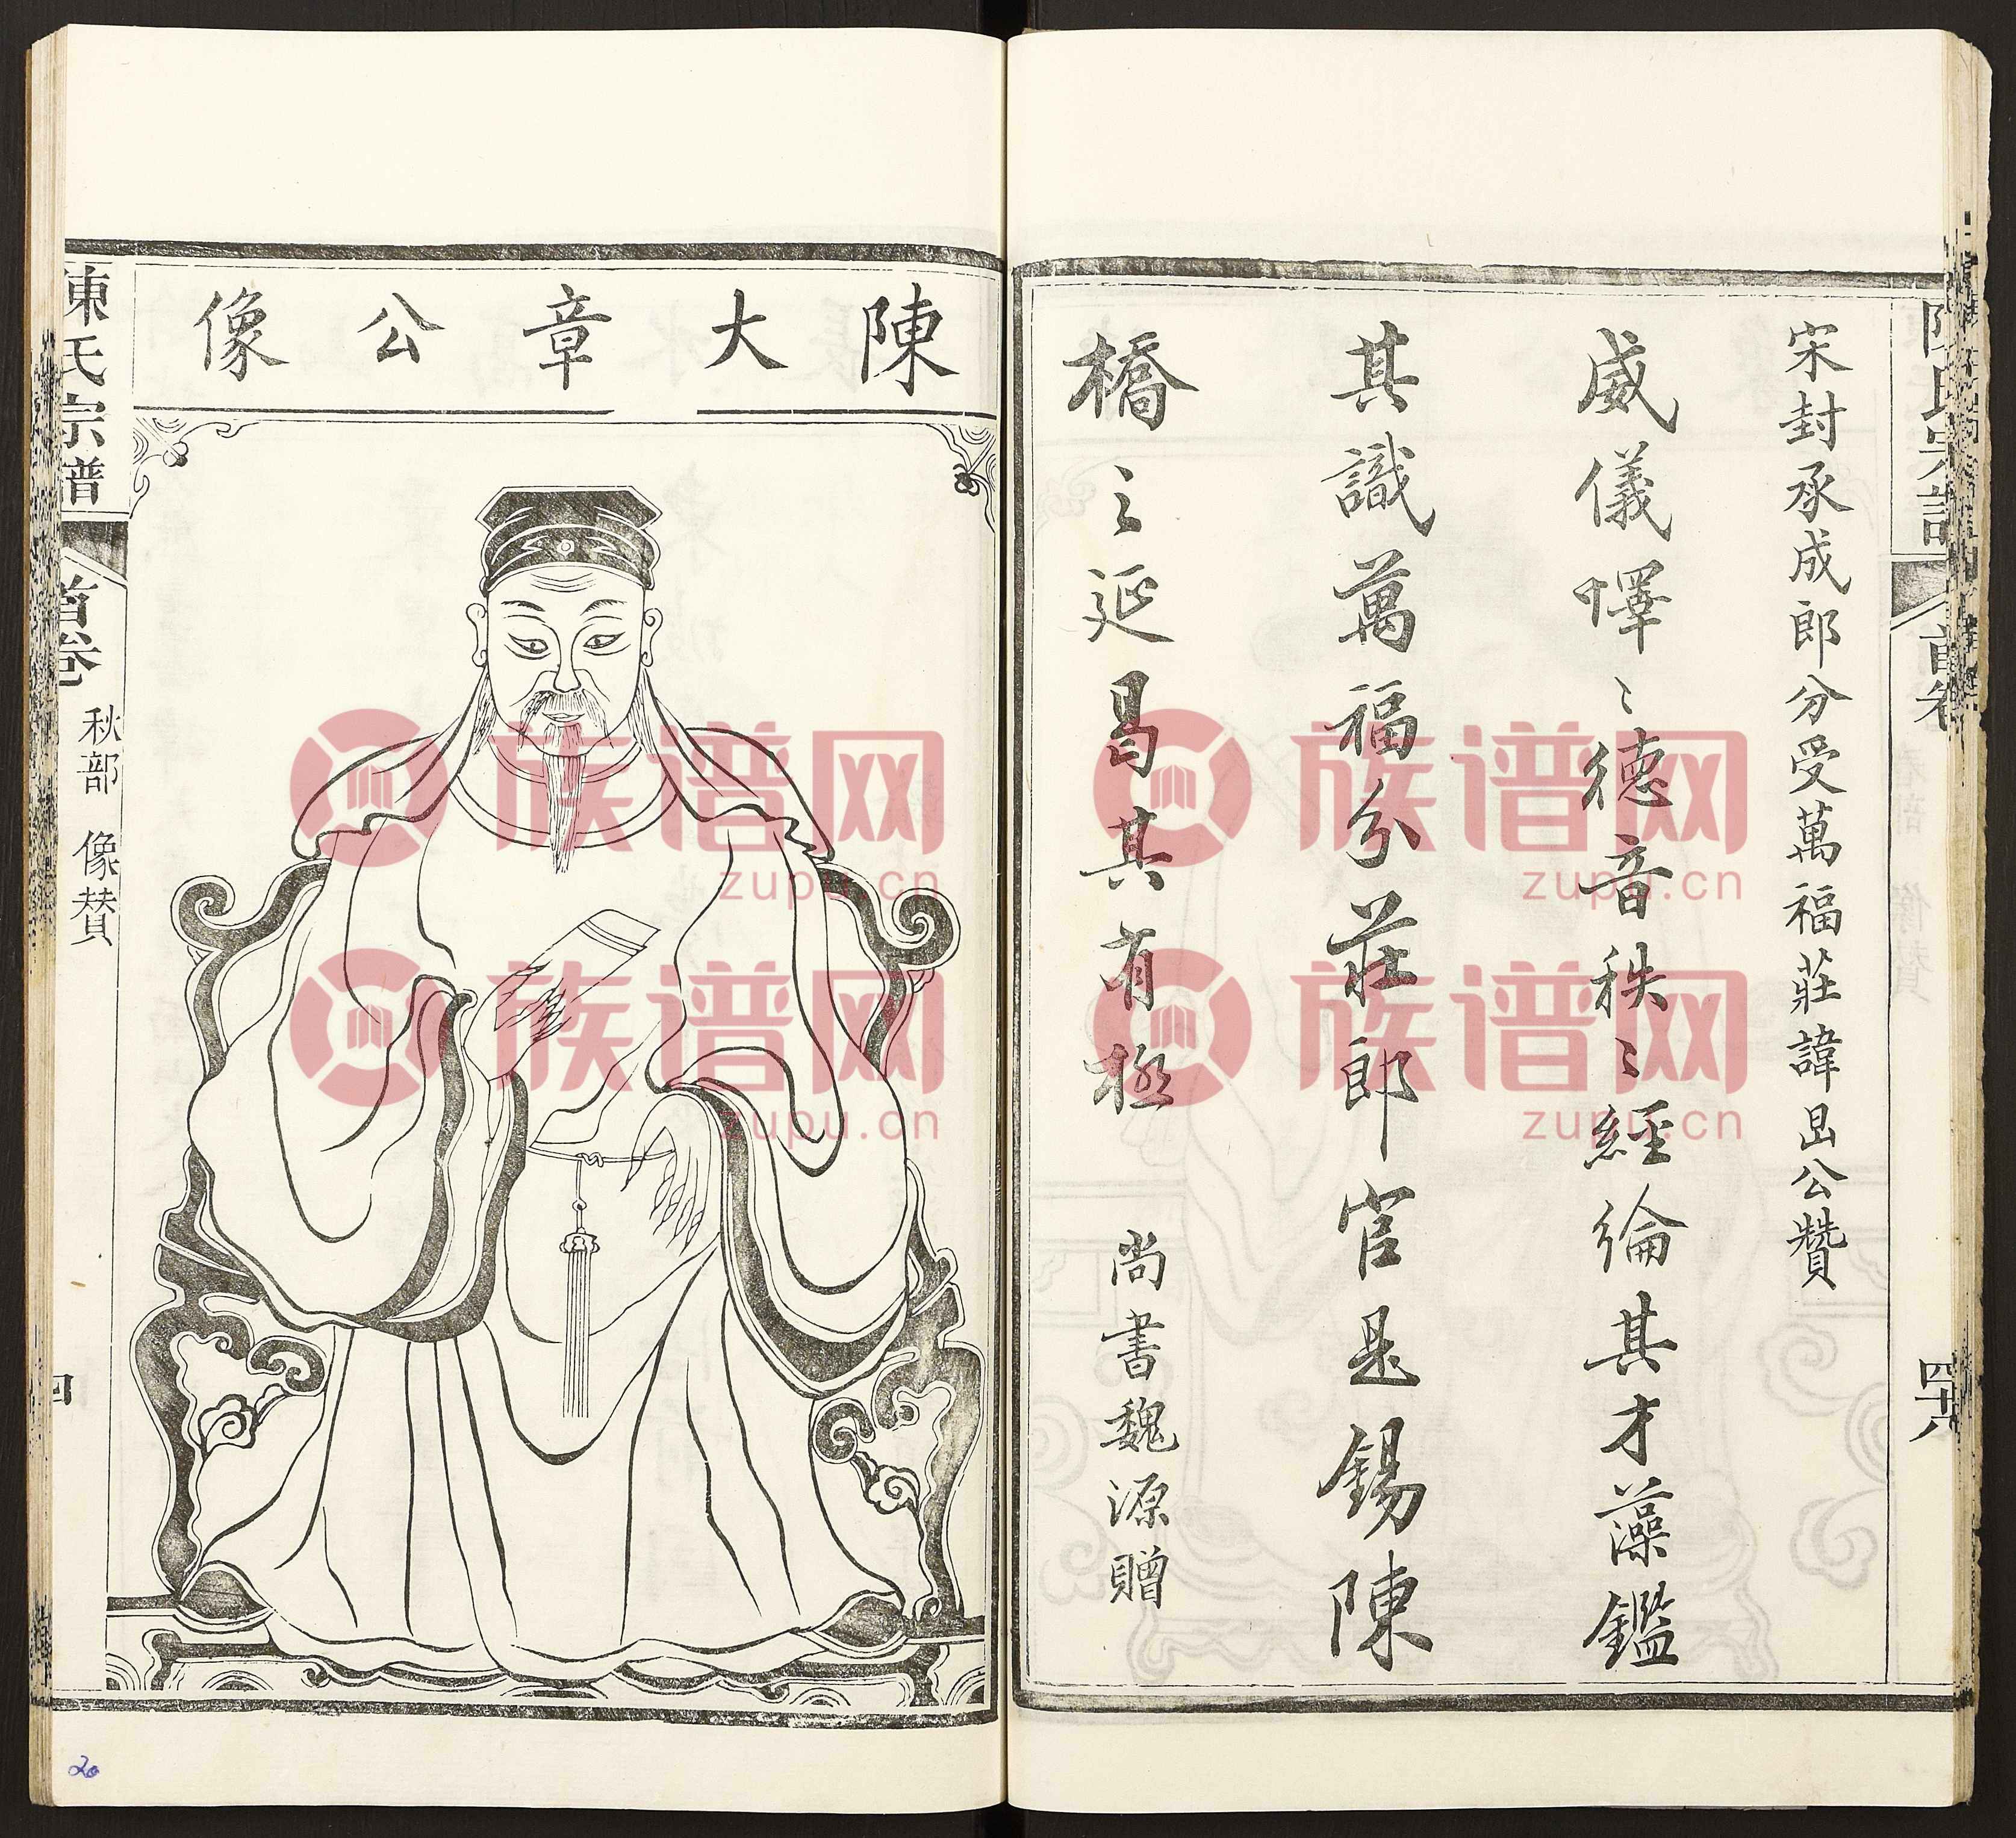 宋封承成郎分受萬福莊諱昷公贊
威儀嘽〻德音秩〻經綸其才藻鑑
其識萬福分莊郎官是錫陳
橋〻延昌其有極 尚書魏源贈
四十八
陳大章公像
陳氏宗譜
首卷
秋部 像贊
族谱网
zupu.cn
族谱网
zupu.cn
族谱网
zupu.cn
族谱网
zupu.cn
20